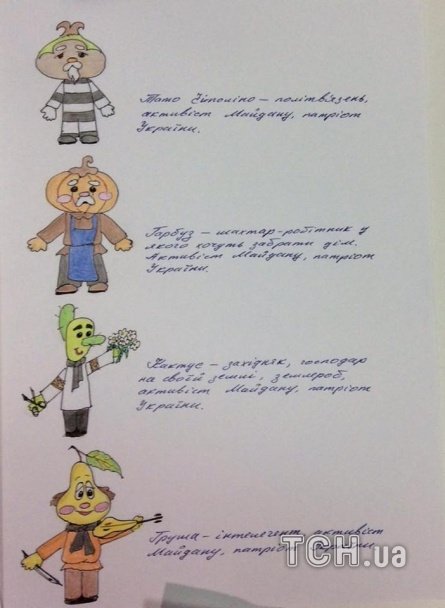 Тато Чіполіно – політв'язень,
активіст Майдану, патріот
України.
Гарбуз – шахтар-робітник у
якого хочуть забрати дім.
Активіст Майдану, патріот
України.
Кактус – західняк, господар
на своїй землі, землероб,
активіст Майдану, патріот
України.
Груша – інтелегент, активіст
Майдану, патріот України
ТСН.ua